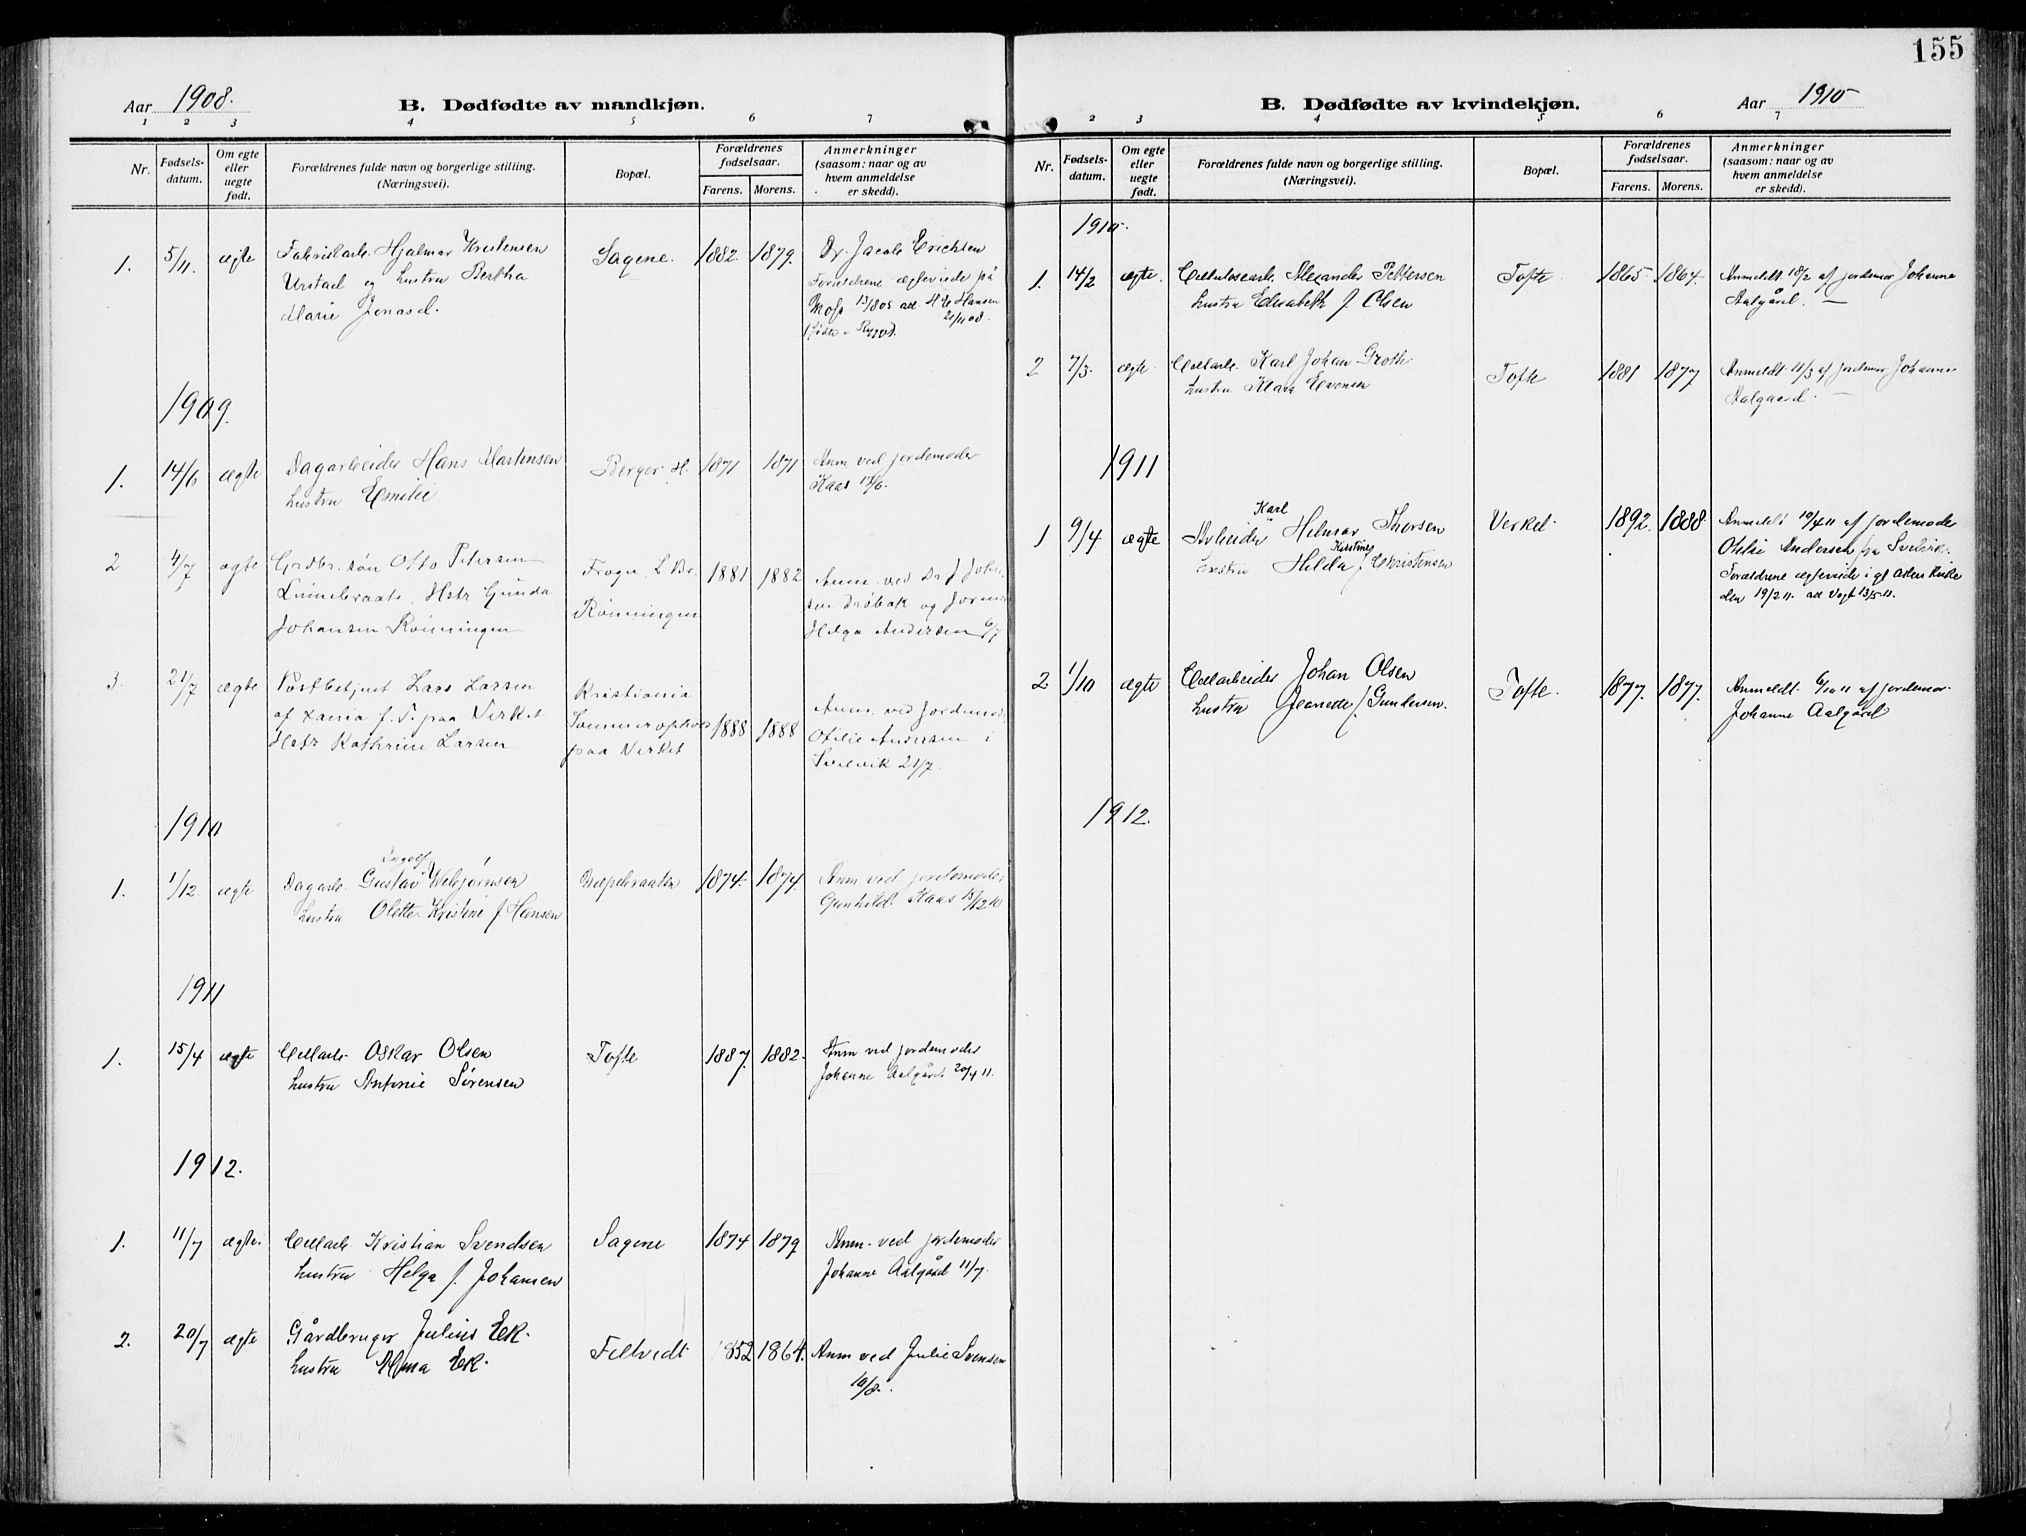 155
Aar 1908.
B. Dødfødte av mandkjøn.
1 2 3 4 5 6 7
Nr.
Fødselsdatum.
Om egte eller uegte født.
Forældrenes fulde navn og borgerlige stilling. (Næringsvei).
Bopæl.
Forældrenes fødselsaar.
Farens. Morens.
Anmerkninger (saasom: naar og av hvem anmeldelse er skedd).
1. 5/11. ægte Fabrikarb. Hjalmar Kristensen Sagene. 1882. 1879. Dr. Jacob Erichsen
Urstad og hustru Bertha Forældrene ægteviede på
Marie Jonasd. Moss
1909.
1. 14/6 ægte Dagarbeider Hans Martinsen Berger H. 1871 1871 Anm ved jordemoder
hustru Emilie Kaas 15/6.
2 4/7 ægte Grdbr. søn Otto Petersen Frogn L. Br. 1881 1882 Anm. ved Dr J Johnsen
Linnebraate Hstr Gunda Rönningen Dröbak og Jorm
Johansen Rönningen Helga Andersen 6/7
3. 21/7 ægte Postbetjent Lars Larsen Kristiania
af Xania f. T. paa Verket Sommerophold 1888 1888 Anm. ved Jordemod.
Hstr Kathrine Larsen paa Verket Otilie Andersen i
Svelvik 21/7.
1910
Ingolf
1. 1/12. ægte Dagarb. Gustav Vebjørnsen 1874. 1874. Anm ved jordemoder
hustru Olette Kristine f Hansen Gunhild Kaas 15/12 10
1911
1. 15/4 ægte Cellarb. Oskar Olsen Tofte 1887. 1882. Anm ved jordemoder
hustru Antonie Sørensen Johanne Aalgård 20/4 11.
1912.
1. 11/7 ægte. Cellarb. Kristian Svendsen Sagene 1874 1879 Anm. ved jordemoder
hustru Helga f. Johansen Johanne Aalgård 11/7.
2. 20/7 ægte Gårdbruger Julius Eek. Feltvedt 1852 1864. Anm ved Julie Svensen
hustru Alma Eek. 10/8.
B. Dødfødte av kvindekjøn.
Aar 1910
2 3 4 5 6 7
Nr.
Fødselsdatum.
Om egte eller uegte født.
Forældrenes fulde navn og borgerlige stilling. (Næringsvei).
Bopæl.
Forældrenes fødselsaar.
Farens. Morens.
Anmerkninger (saasom: naar og av hvem anmeldelse er skedd).
1910.
1. 14/2 ægte. Cellulosearb. Alexander Pettersen Tofte 1865 1864. Anmeldt 18/2 af jordemor Johanne
hustru Elisabeth f. Olsen Aalgård.
2 7/3. ægte. Cellarb. Karl Johan Groth. Tofte 1881 1877 Anmeldt 11/3 af jordemor Johanne
hustru Klara Evensen Aalgaard.
1911
Karl
1 9/4 ægte Arbeider Helmar Thorsen Verket. 1892. 1888. Anmeldt 10/4 11 af jordemoder
Kirstine
hustru Hilda f Christensen Otilie Andersen fra Svelvik.
Forældrene ægteviede i gl Akers kirke
den 19/2 11. att Vogt 13/5 11.
2 1/10 ægte Cellarbeider Johan Olsen Tofte. 1877. 1877. Anmeldt 6/10 11 af jordemor
hustru Jeanette f. Gundersen. Johanne Aalgård
1912.